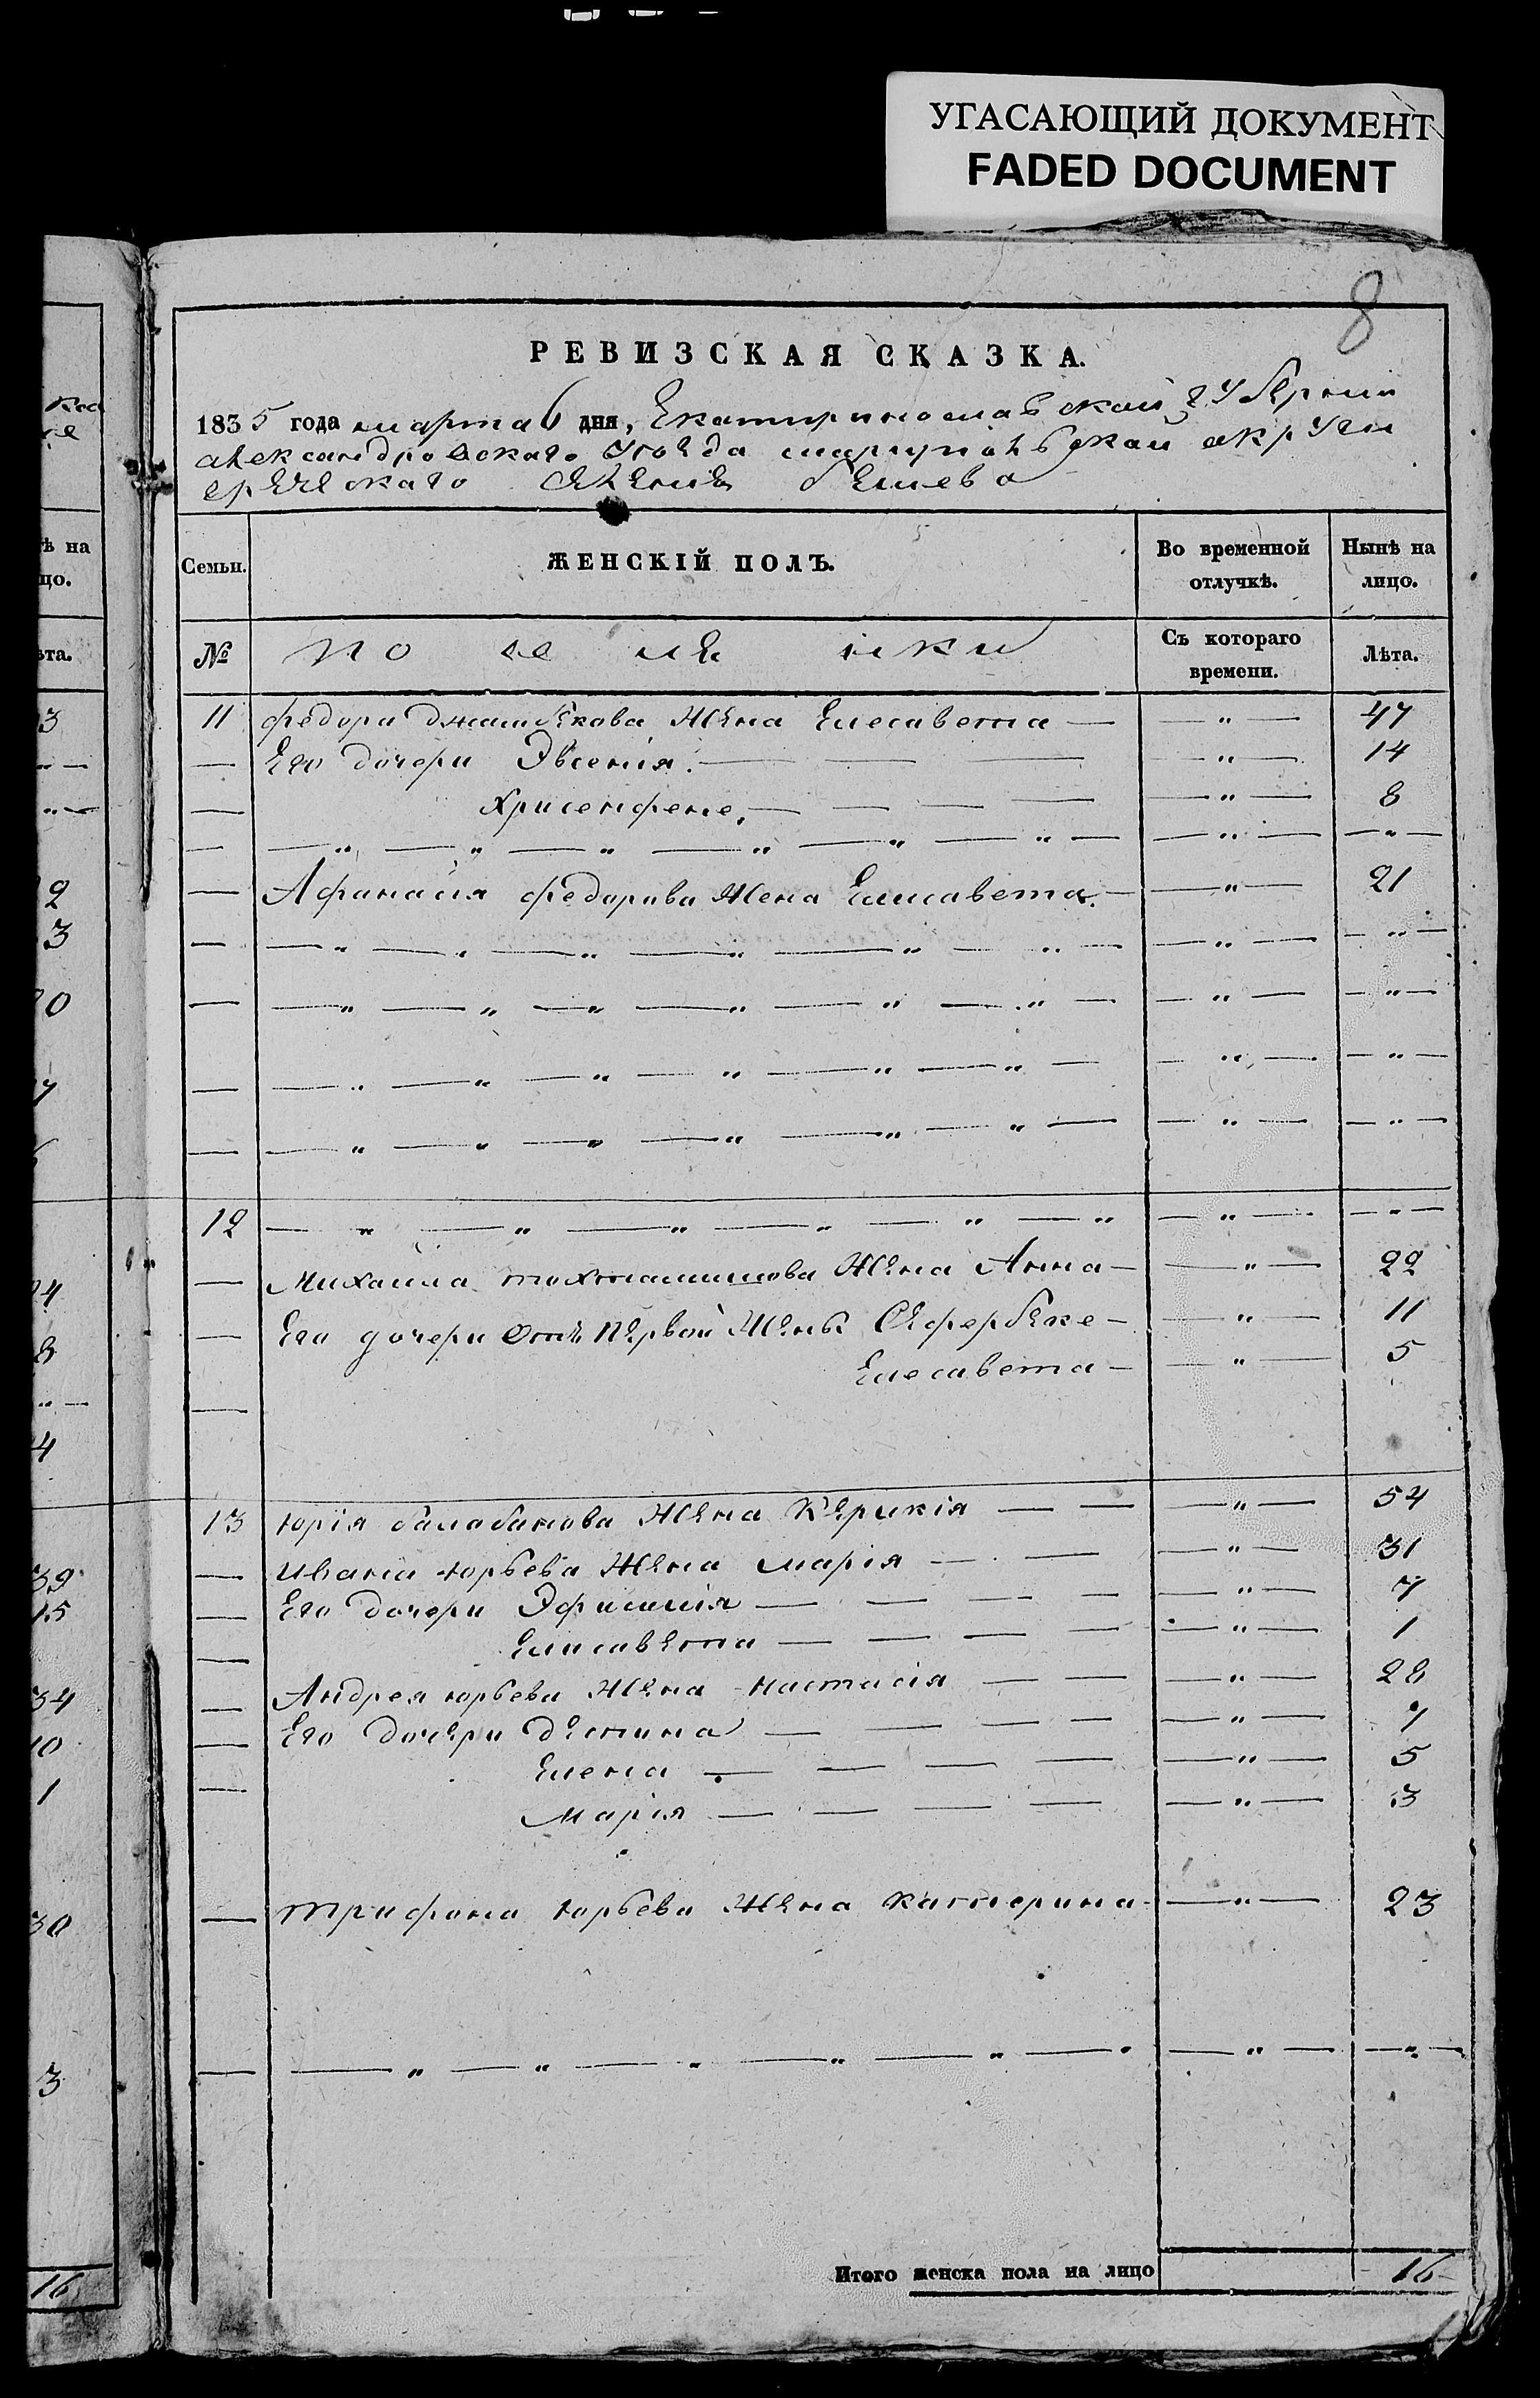 УГАСАЮЩИЙ ДОКУМЕНТ
FADED DOCUMENT
8
РЕВИЗСКАЯ СКАЗКА.
1835 года марта 6 дня, Екатиринославской губернии
александровскаго уезда мариупольской округи
греческаго селения бешева
Семьи. ЖЕНСКІЙ ПОЛЪ. Во временной отлучкѣ. Нынѣ на лицо.
№ поселянки Съ котораго времени. Лѣта.
11 федора джамбекова жена Елесавета — „ — 47
— Его дочери Эвсенія. — „ — 14
— Хрисенфене, — „ — 8
— „ — „ — „ — „ — „ — „ — — „ — — „ —
— Афанасія федорова жена Елисавета. — „ — 21
— „ — „ — „ — „ — „ — „ — — „ — — „ —
— „ — „ — „ — „ — „ — „ — — „ — — „ —
— „ — „ — „ — „ — „ — „ — — „ — — „ —
— „ — „ — „ — „ — „ — „ — — „ — — „ —
12 — „ — „ — „ — „ — „ — „ — „ — — „ —
— Михаила тохтамишова жена Анна — „ — 22
— Его дочери отъ первой жены СеферБеке — „ — 11
Елесавета — „ — 5
13 юрія балабанова жена Керикія — „ — 54
— ивана юрьева жена марія — „ — 31
— Его дочери Эфимия — „ — 7
— Елисавета — „ — 1
— Андрея юрьева жена настасія — „ — 28
— Его дочери деспина — „ — 7
— Елена — „ — 5
марія — „ — 3
— трифона юрьева жена катерина — „ — 23
— „ — „ — „ — „ — „ — „ — „ — — „ —
Итого женска пола на лицо 16